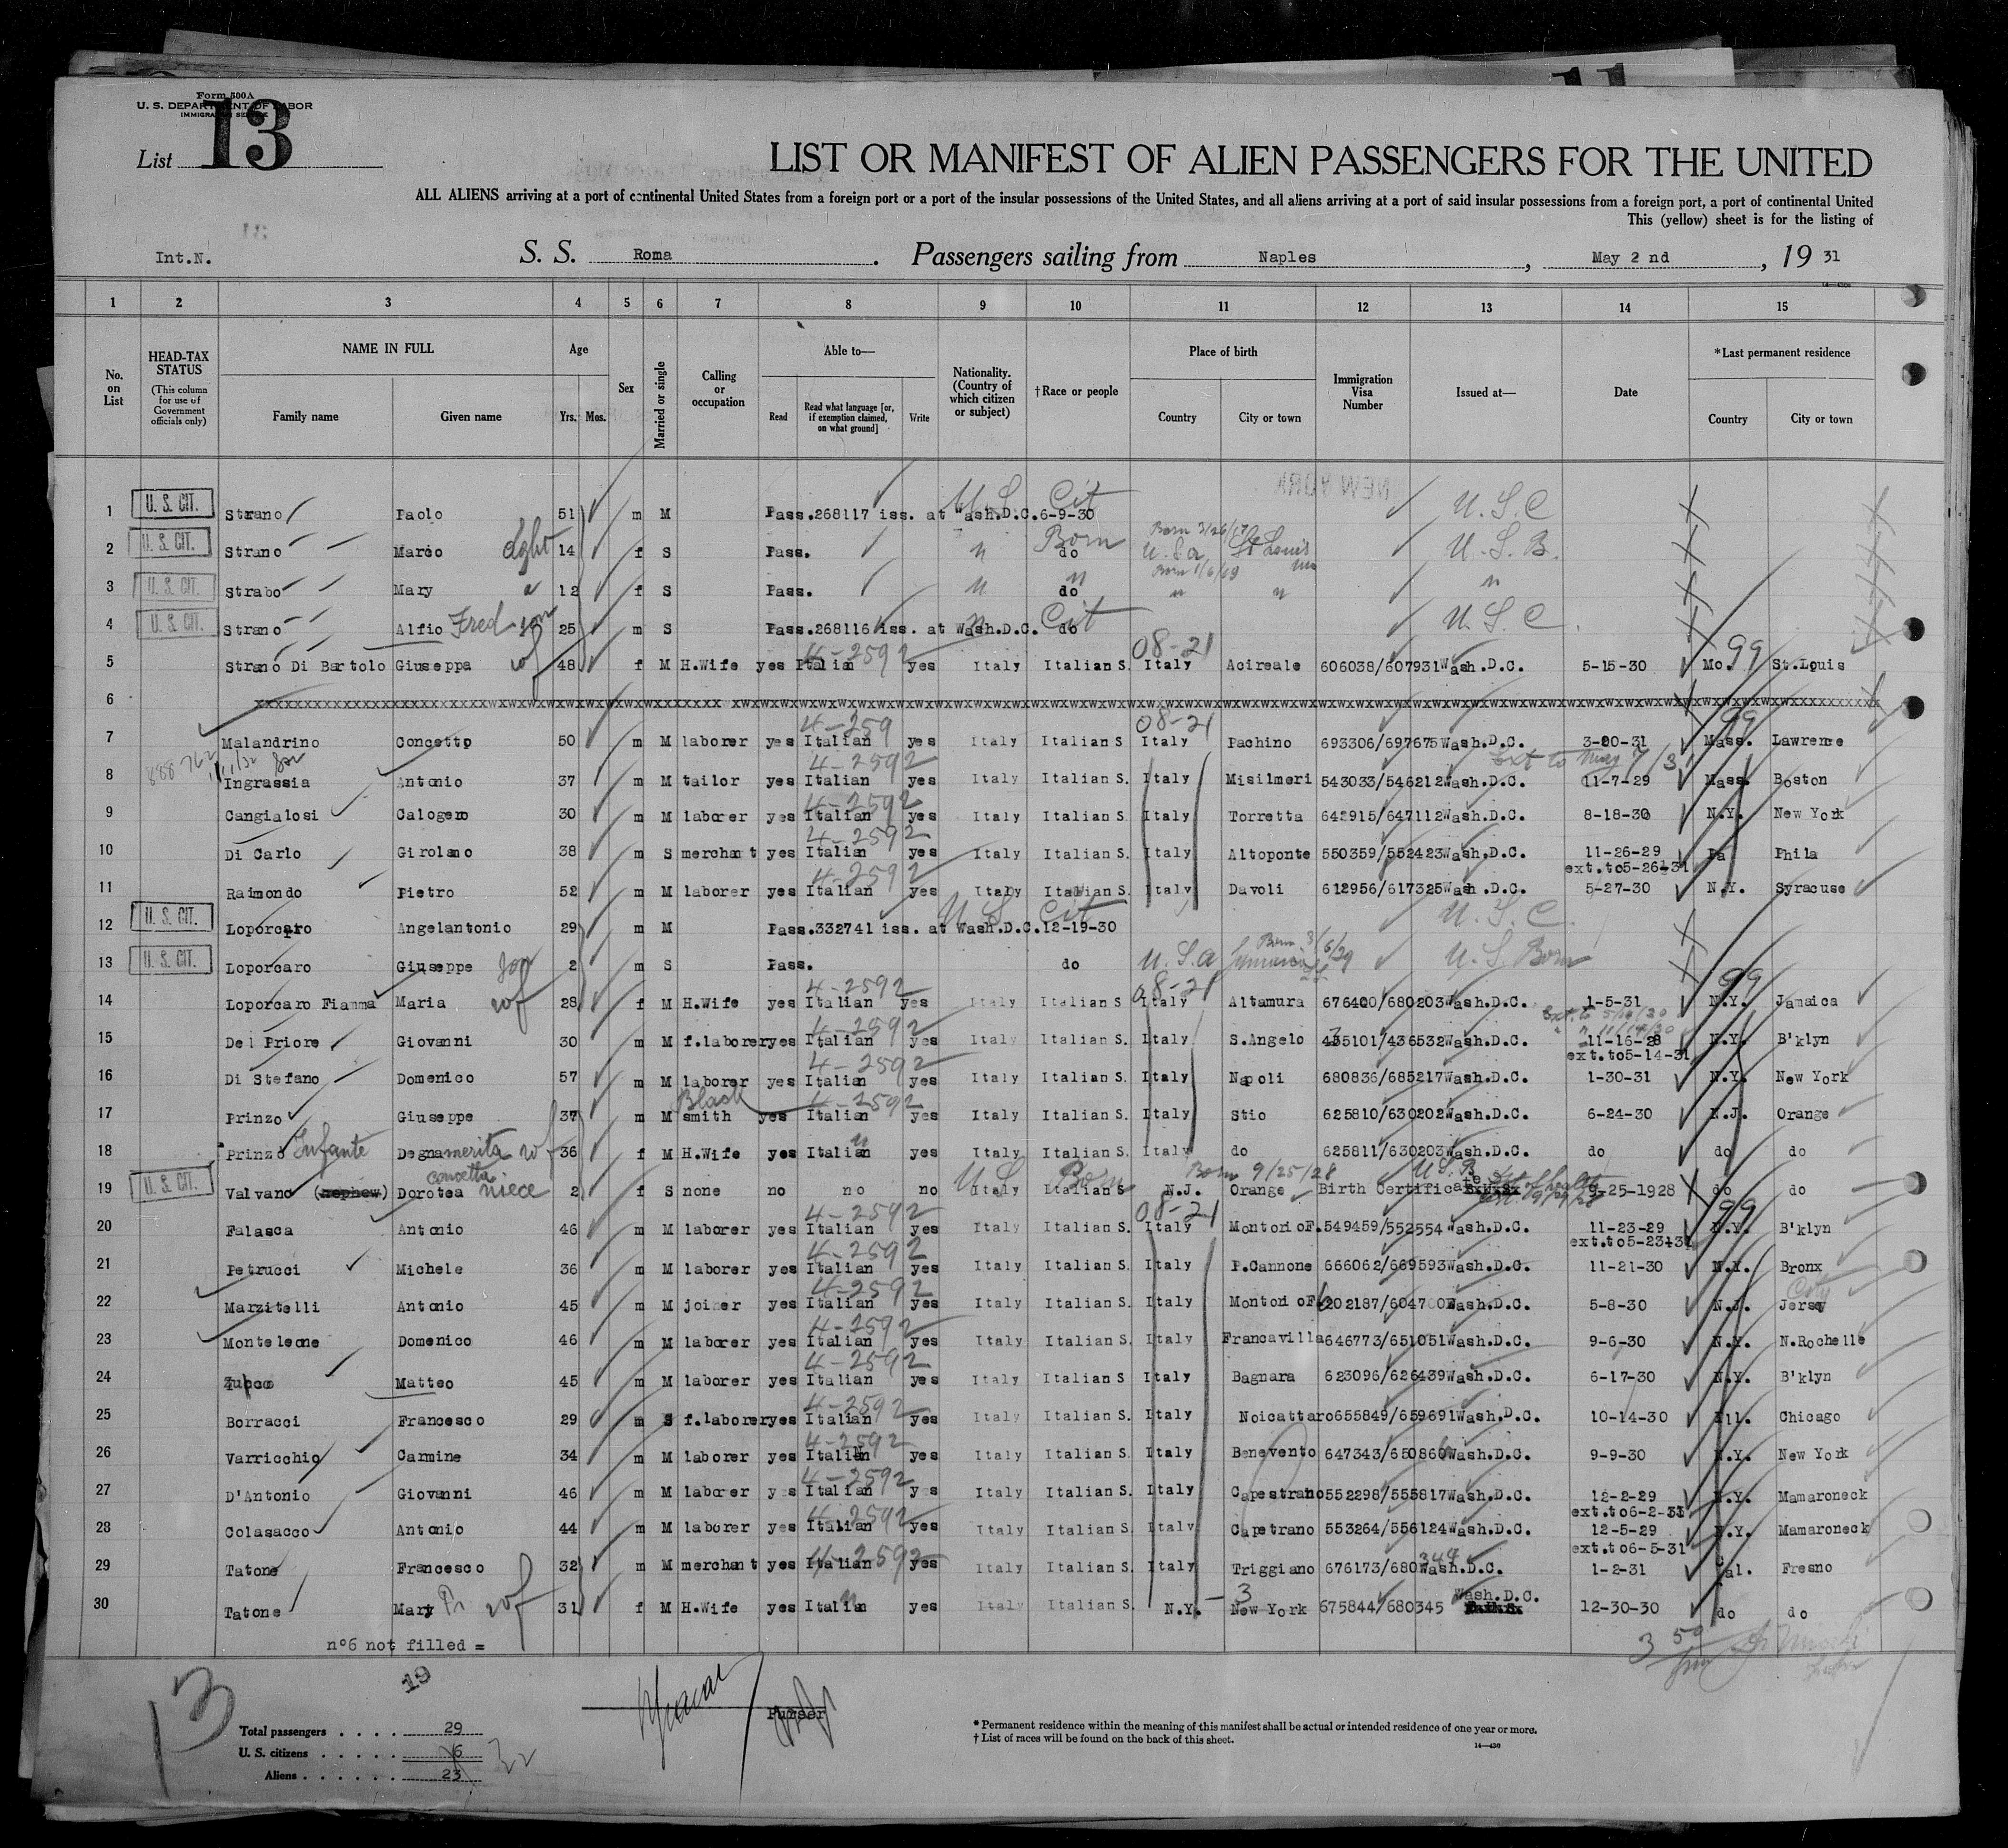 Form 500A
U. S. DEPARTMENT OF LABOR
IMMIGRATION SERVICE
List 13
LIST OR MANIFEST OF ALIEN PASSENGERS FOR THE UNITED
ALL ALIENS arriving at a port of continental United States from a foreign port or a port of the insular possessions of the United States, and all aliens arriving at a port of said insular possessions from a foreign port, a port of continental United
This (yellow) sheet is for the listing of
Int.N. S. S. Roma. Passengers sailing from Naples, May 2 nd, 19 31
1 2 3 4 5 6 7 8 9 10 11 12 13 14 15
No. on List HEAD-TAX STATUS (This column for use of Government officials only) NAME IN FULL Family name Given name Age Yrs. Mos. Sex Married or single Calling or occupation Able to— Read Read what language [or, if exemption claimed, on what ground] Write Nationality. (Country of which citizen or subject) †Race or people Place of birth Country City or town Immigration Visa Number Issued at— Date *Last permanent residence Country City or town
1 U. S. CIT. Strano Paolo 51 m M Pass.268117 iss. at Wash.D.C.6-9-30 U.S. Cit U.S.C
2 U. S. CIT. Strano Marco dght 14 f S Pass. " Born do Born 3/26/17 U.S.a St Louis Mo U.S.B.
3 U. S. CIT. Strabo Mary " 12 f S Pass. " " do Born 1/6/19 " " "
4 U. S. CIT. Strano Alfio Fred son 25 m S Pass.268116 iss. at Wash.D.C. do Cit U.S.C.
5 Strano Di Bartolo Giuseppa wf 48 f M H.Wife yes Italian 4-2592 yes Italy Italian S. 08-21 Italy Acireale 606038/607931 Wash.D.C. 5-15-30 Mo. 99 St.Louis
6
7 Malandrino Concetto 50 m M laborer yes 4-259 Italian yes Italy Italian S 08-21 Italy Pachino 693306/697675 Wash.D.C. 3-20-31 99 Mass. Lawrence
8 Ingrassia Antonio 37 m M tailor yes 4-2592 Italian yes Italy Italian S. Italy Misilmeri 543033/546212 Wash.D.C. Ext to May 7/31 11-7-29 Mass. Boston
9 Cangialosi Calogero 30 m M laborer yes 4-2592 Italian yes Italy Italian S. Italy Torretta 642915/647112 Wash.D.C. 8-18-30 N.Y. New York
10 Di Carlo Girolamo 38 m S merchant yes 4-2592 Italian yes Italy Italian S. Italy Altoponte 550359/552423 Wash.D.C. 11-26-29 ext.to5-26-31 Pa Phila
11 Raimondo Pietro 52 m M laborer yes 4-2592 Italian yes Italy Italian S. Italy Davoli 612956/617325 Wash.D.C. 5-27-30 N.Y. Syracuse
12 U. S. CIT. Loporcaro Angelantonio 29 m M Pass.332741 iss. at Wash.D.C.12-19-30 U.S. Cit U.S.C.
13 U. S. CIT. Loporcaro Giuseppe son 2 m S Pass. do U.S.a Born 3/6/29 Jamaica U.S. Born
14 Loporcaro Fiamma Maria wf 28 f M H.Wife yes 4-2592 Italian yes Italy Italian S 08-21 Italy Altamura 676400/680203 Wash.D.C. 1-5-31 99 N.Y. Jamaica
15 Del Priore Giovanni 30 m M f.laborer yes 4-2592 Italian yes Italy Italian S. Italy S.Angelo 435101/436532 Wash.D.C. 11-16-28 ext.to5-14-31 N.Y. B'klyn
16 Di Stefano Domenico 57 m M laborer yes 4-2592 Italian yes Italy Italian S. Italy Napoli 680836/685217 Wash.D.C. 1-30-31 N.Y. New York
17 Prinzo Giuseppe 37 m M Black smith yes 4-2592 Italian yes Italy Italian S. Italy Stio 625810/630202 Wash.D.C. 6-24-30 N.J. Orange
18 Prinzo Infante Degnamerita wf 36 f M H.Wife yes Italian " yes Italy Italian S. Italy do 625811/630203 Wash.D.C. do do do
19 U. S. CIT. Valvano (nephew) Dorotea Concetta niece 2 f S none no no no Italy Italian S U.S. Born Born 9/25/28 N.J. Orange Birth Certificate U.S.B 9-25-1928 do do
20 Falasca Antonio 46 m M laborer yes 4-2592 Italian yes Italy Italian S. 08-21 Italy Montorio F. 549459/552554 Wash.D.C. 11-23-29 ext.to5-23-31 99 N.Y. B'klyn
21 Petrucci Michele 36 m M laborer yes 4-2592 Italian yes Italy Italian S. Italy P.Cannone 666062/669593 Wash.D.C. 11-21-30 N.Y. Bronx
22 Marzitelli Antonio 45 m M joiner yes 4-2592 Italian yes Italy Italian S. Italy Montorio F. 602187/604700 Wash.D.C. 5-8-30 N.J. Jersey City
23 Monteleone Domenico 46 m M laborer yes 4-2592 Italian yes Italy Italian S. Italy Francavilla 646773/651051 Wash.D.C. 9-6-30 N.Y. N.Rochelle
24 Matteo 45 m M laborer yes 4-2592 Italian yes Italy Italian S. Italy Bagnara 623096/626439 Wash.D.C. 6-17-30 N.Y. B'klyn
25 Borracci Francesco 29 m S f.laborer yes 4-2592 Italian yes Italy Italian S. Italy Noicattaro 655849/659691 Wash.D.C. 10-14-30 Ill. Chicago
26 Varricchio Carmine 34 m M laborer yes 4-2592 Italian yes Italy Italian S. Italy Benevento 647343/650866 Wash.D.C. 9-9-30 N.Y. New York
27 D'Antonio Giovanni 46 m M laborer yes 4-2592 Italian yes Italy Italian S. Italy Capestrano 552298/555817 Wash.D.C. 12-2-29 ext.to6-2-31 N.Y. Mamaroneck
28 Colasacco Antonio 44 m M laborer yes 4-2592 Italian yes Italy Italian S. Italy Capetrano 553264/556124 Wash.D.C. 12-5-29 ext.to6-5-31 N.Y. Mamaroneck
29 Tatone Francesco 32 m M merchant yes 4-2592 Italian yes Italy Italian S. Italy Triggiano 676173/680344 Wash.D.C. 1-2-31 Cal. Fresno
30 Tatone Mary wf 31 f M H.Wife yes Italian " yes Italy Italian S. N.Y. -3 New York 675844/680345 Wash.D.C. 12-30-30 do do
nº6 not filled =
13 19
Purser
Total passengers . . . . 29
U. S. citizens . . . . . 6
Aliens . . . . . . 23
* Permanent residence within the meaning of this manifest shall be actual or intended residence of one year or more.
† List of races will be found on the back of this sheet.
14—430